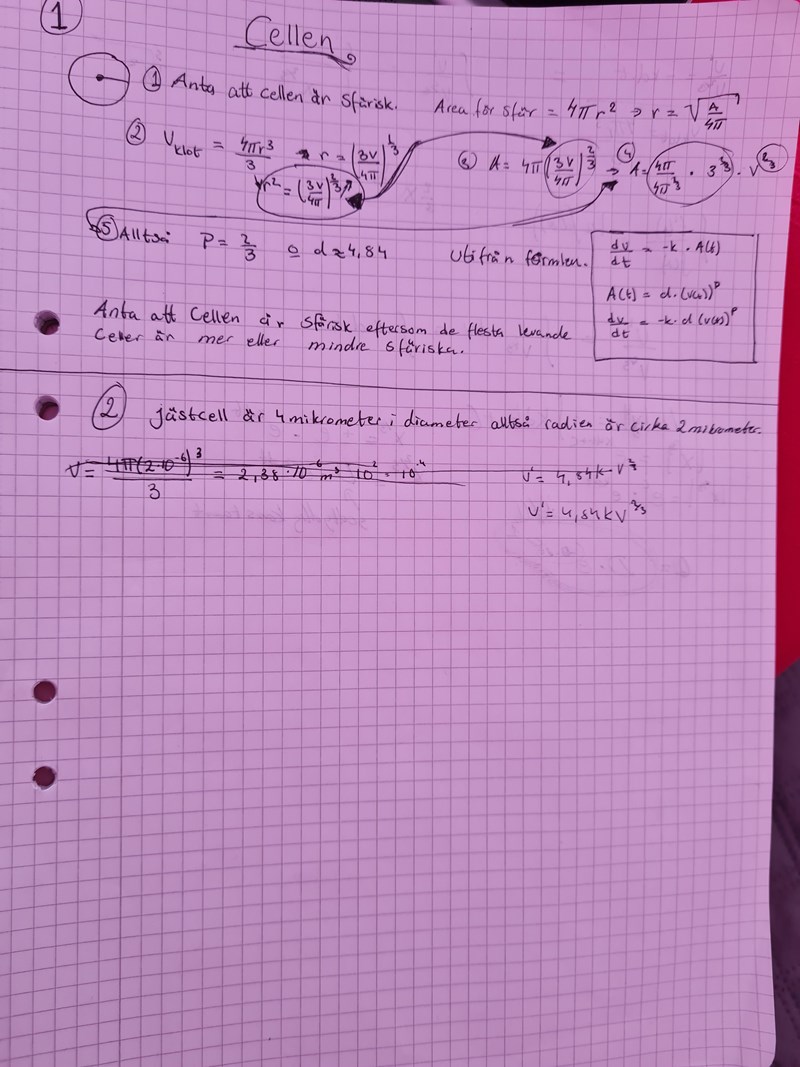 1
Cellen
① Anta att cellen är sfärisk. Area för sfär = 4πr² ⇒ r = √(A/4π)
② V_klot = 4πr³/3 → r = (3V/4π)^(1/3)
r² = (3V/4π)^(2/3)
③ A = 4π(3V/4π)^(2/3) ⇒ ④ A = 4π/4π^(2/3) · 3^(2/3) · V^(2/3)
⑤ Alltså P = 2/3 o d ≈ 4,84 Utifrån formlen.
dv/dt = -k · A(t)
A(t) = d·(V(t))^P
dv/dt = -k·d (V(t))^P
Anta att Cellen är sfärisk eftersom de flesta levande
Celler är mer eller mindre sfäriska.
② jästcell är 4 mikrometer i diameter alltså radien är cirka 2 mikrometer.
V = 4π(2·10^-6)^3/3 = 2,38·10^-6 m³ 10^2 · 10^-4
V' = 4,84k-V^(2/3)
V' = 4,84kV^(2/3)